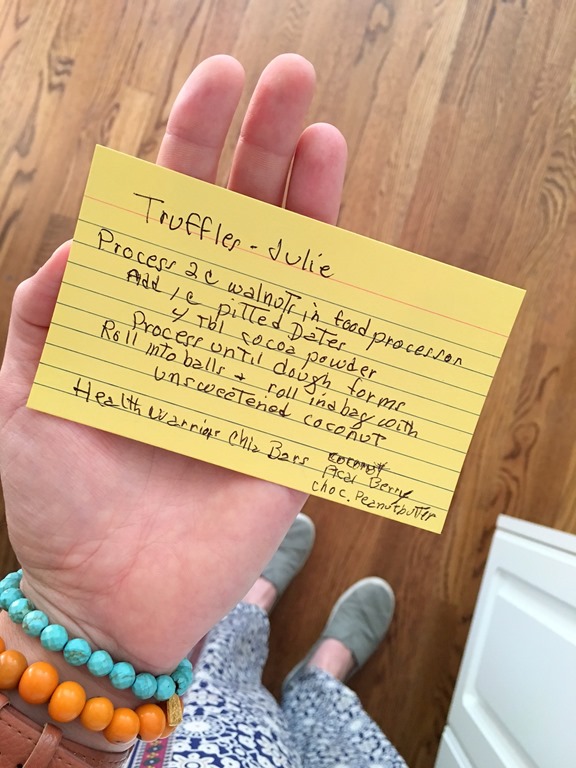 Truffles - Julie
Process 2 c walnuts in food processor
Add 1 c pitted Dates
4 Tbl cocoa powder
Process until dough forms
Roll into balls + roll in a bag with
unsweetened coconut
Health Warrior Chia Bars coconut
Acai Berry
choc. Peanutbutter